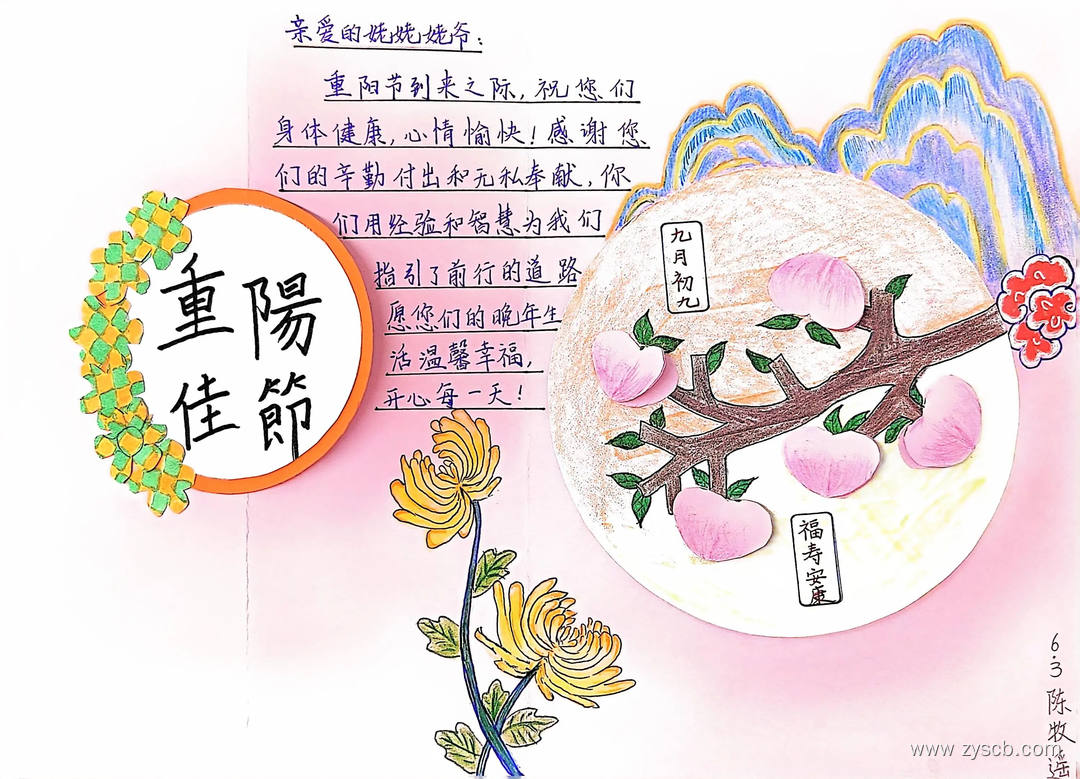 亲爱的姥姥姥爷：
重阳节到来之际，祝您们
身体健康，心情愉快！感谢您
们的辛勤付出和无私奉献，你
们用经验和智慧为我们
指引了前行的道路
愿您们的晚年生
活温馨幸福，
开心每一天！
重陽
佳節
九月初九
福寿安康
6.3 陈牧遥
www.zyscb.com